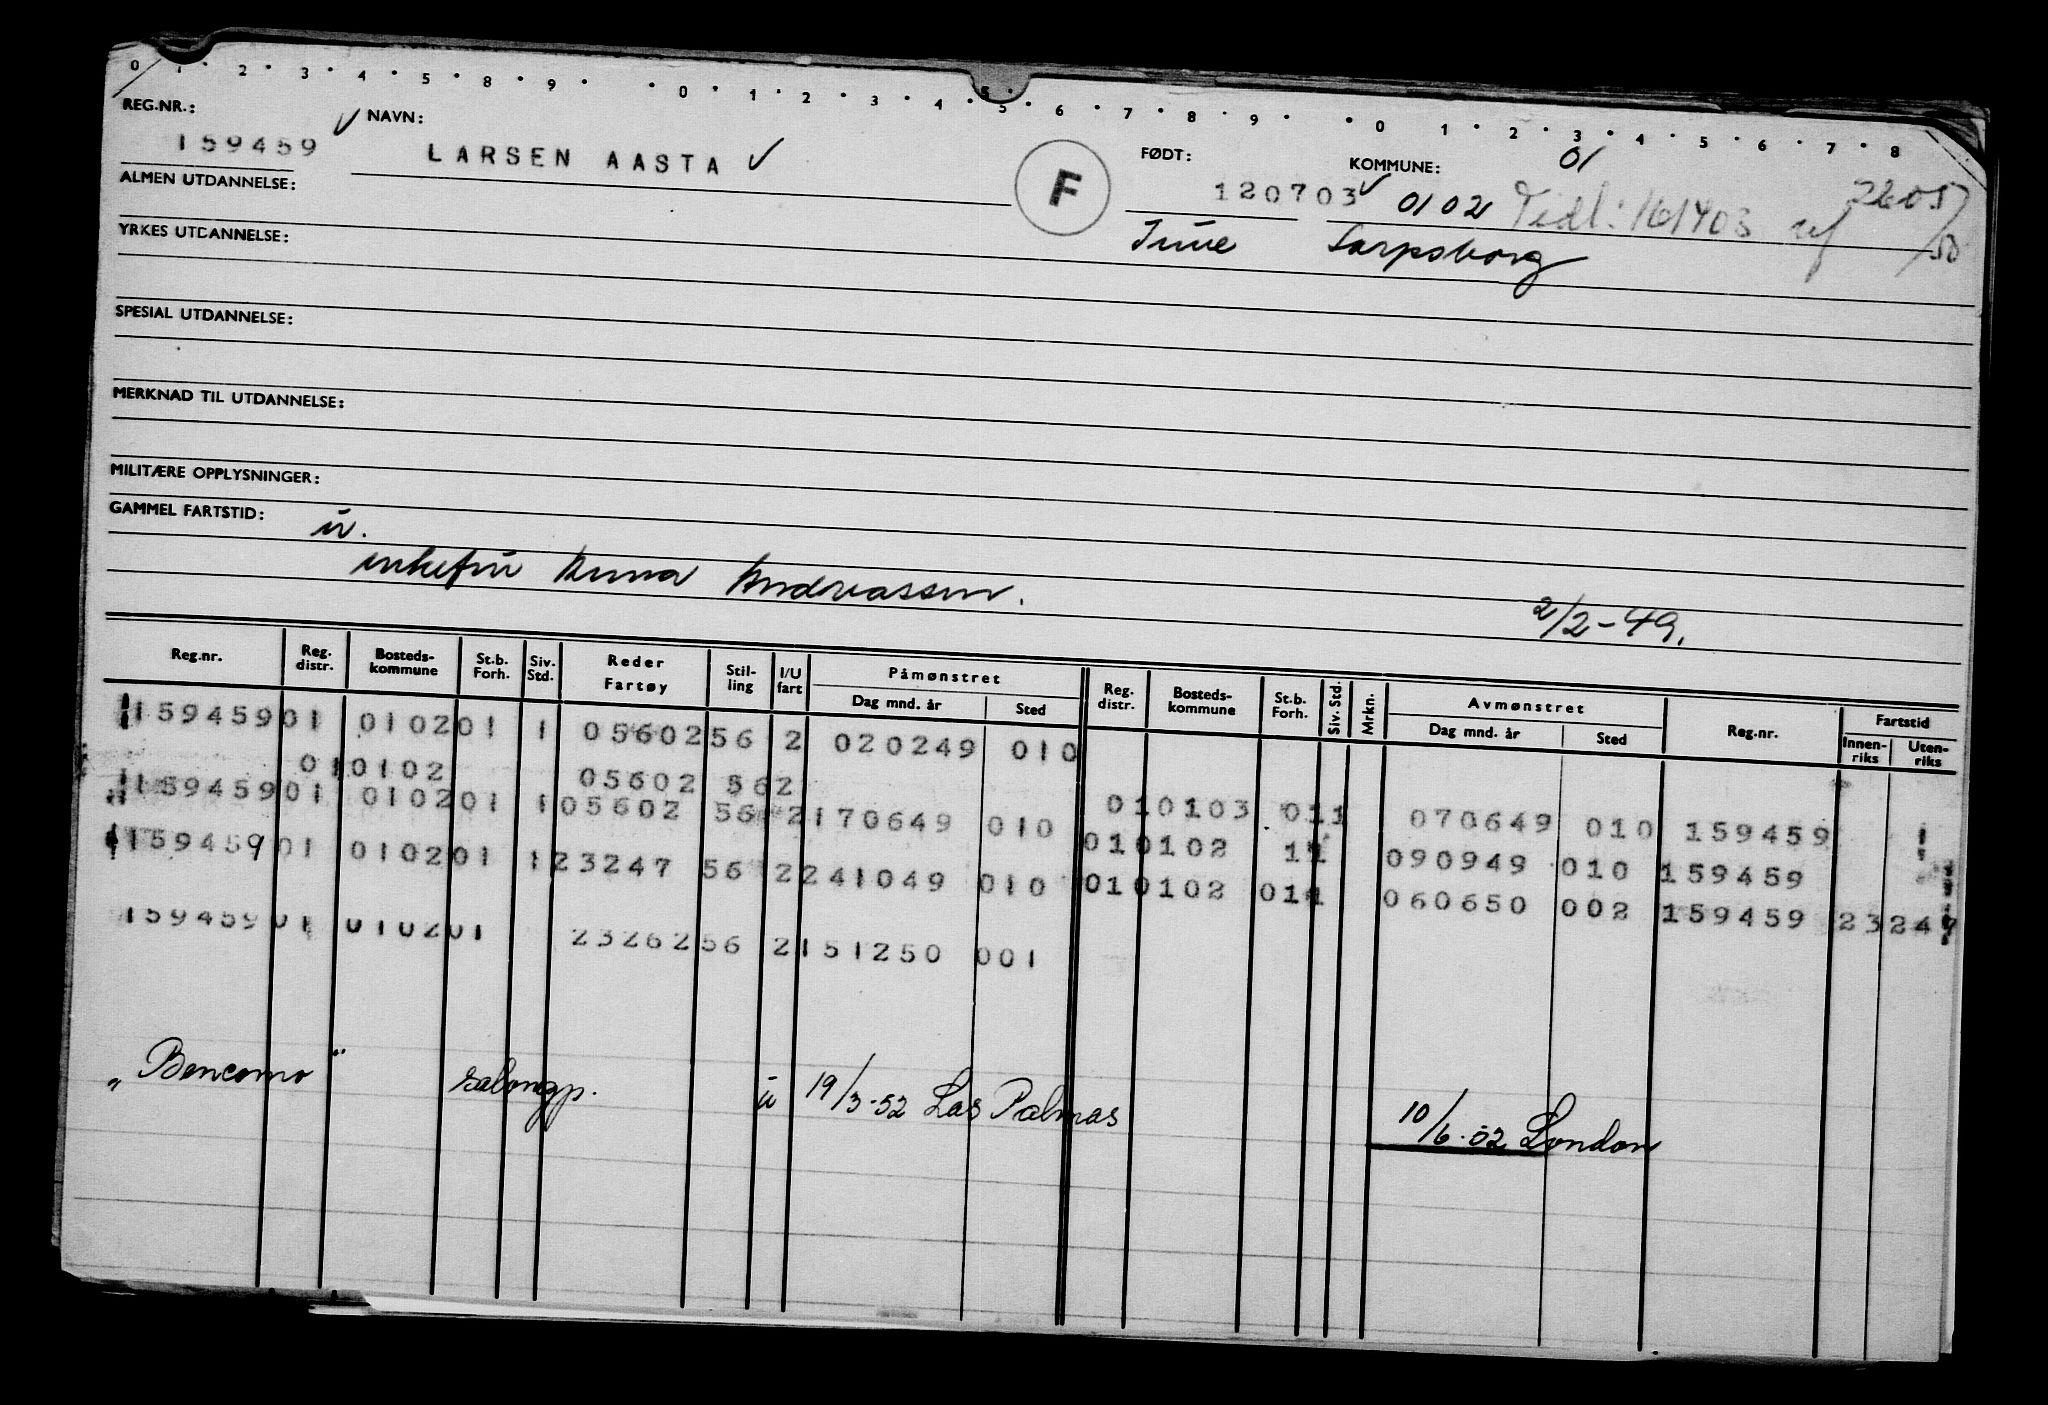 0 1 2 3 4 5 8 9 0 1 2 3 4 5 6 7 8 9 0 1 2 3 4 5 6 7 8
REG.NR.: NAVN: FØDT: KOMMUNE: 01
159459 LARSEN AASTA F 120703 0102 Tidl: 161403
ALMEN UTDANNELSE:
Tune Sarpsborg
YRKES UTDANNELSE:
SPESIAL UTDANNELSE:
MERKNAD TIL UTDANNELSE:
MILITÆRE OPPLYSNINGER:
GAMMEL FARTSTID: ü.
enkefru Anna Andreassen.
2/2-49.
Reg.nr. Reg. distr. Bosteds-kommune St.b. Forh. Siv. Std. Reder Fartøy Stil-ling I/U fart Påmønstret Dag mnd. år Sted Reg. distr. Bosteds-kommune St.b. Forh. Siv. Std. Mrkn. Avmønstret Dag mnd. år Sted Reg.nr. Fartstid Innen-riks Uten-riks
159459 01 0102 01 1 05602 56 2 020249 010
010102 05602 562
010103 011 070649 010 159459
159459 01 0102 01 1 05602 56 2 170649 010
010102 11 090949 010 159459
159459 01 0102 01 1 23247 56 2 241049 010
010102 011 060650 002 159459 23247
159459 01 0102 01 23262 56 2 151250 001
„Bencomo" salongp. ü 19/3-52 Las Palmas 10/6-52 London